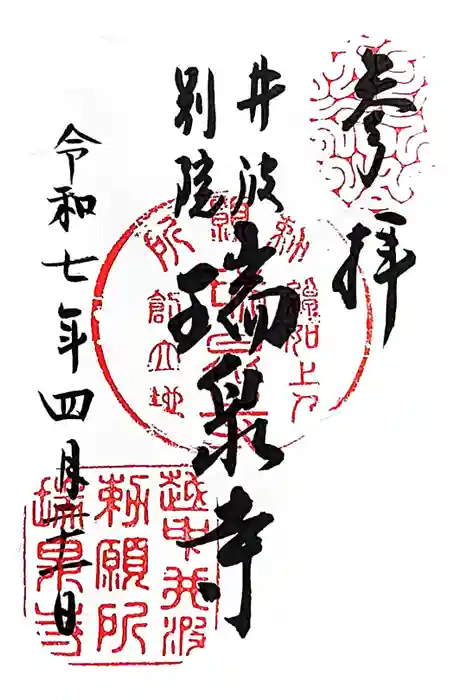 参拝
井波
別院
瑞泉寺
令和七年四月二十二日
勅願所
綽如上人
創立地
越中井波
勅願所
瑞泉寺